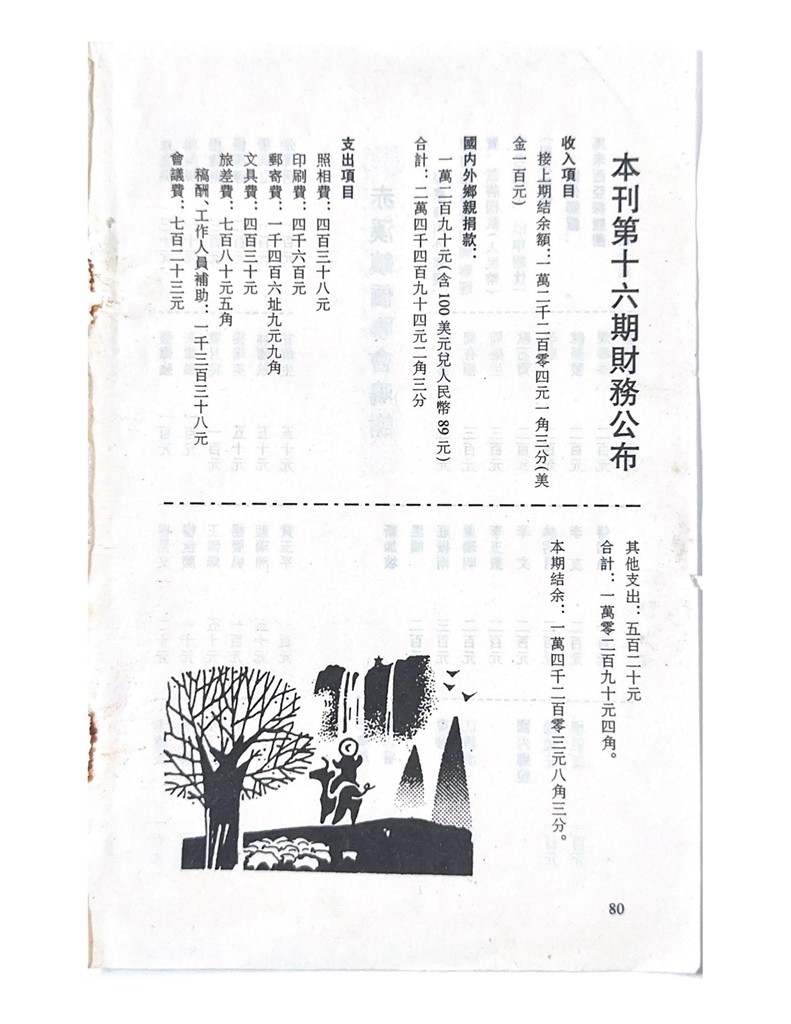 本刊第十六期財務公布
收入項目
接上期結余額：一萬二千二百零四元一角三分(美
金一百元)
國內外鄉親捐款：
一萬二百九十元(含100美元兌人民幣89元)
合計：二萬四千四百九十四元二角三分
支出項目
照相費：四百三十八元
印刷費：四千六百元
郵寄費：一千四百六址九元九角
文具費：四百三十元
旅差費：七百八十元五角
稿酬、工作人員補助：一千三百三十八元
會議費：七百二十三元
其他支出：五百二十元
合計：一萬零二百九十元四角。
本期結余：一萬四千二百零三元八角三分。
80